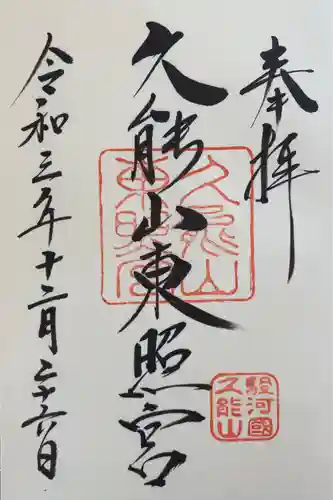 奉拝
久能山東照宮
令和三年十二月二十六日
久能山
東照宮
駿河國
久能山